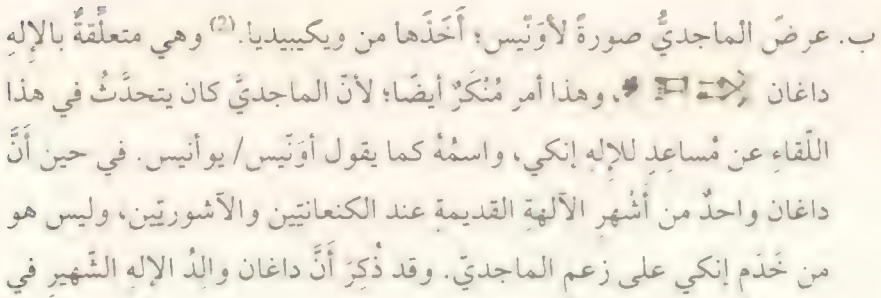 ب. عرضَ الماجديُّ صورةً لأوَنّيس؛ أَخَذَها من ويكيبيديا.(2) وهي متعلِّقةٌ بالإلهِ
داغان، وهذا أمر مُنْكَرٌ أيضًا؛ لأنّ الماجديَّ كان يتحدَّثُ في هذا
اللّقاءِ عن مُساعِدٍ للإلهِ إنكي، واسمُهُ كما يقول أوَنّيس/ يوأنيس. في حين أَنَّ
داغان واحدٌ من أَشْهرِ الآلهةِ القديمةِ عند الكنعانيّين والآشوريّين، وليس هو
من خَدَم إنكي على زعم الماجديّ. وقد ذُكِرَ أَنَّ داغان والِدُ الإلهِ الشّهيرِ في